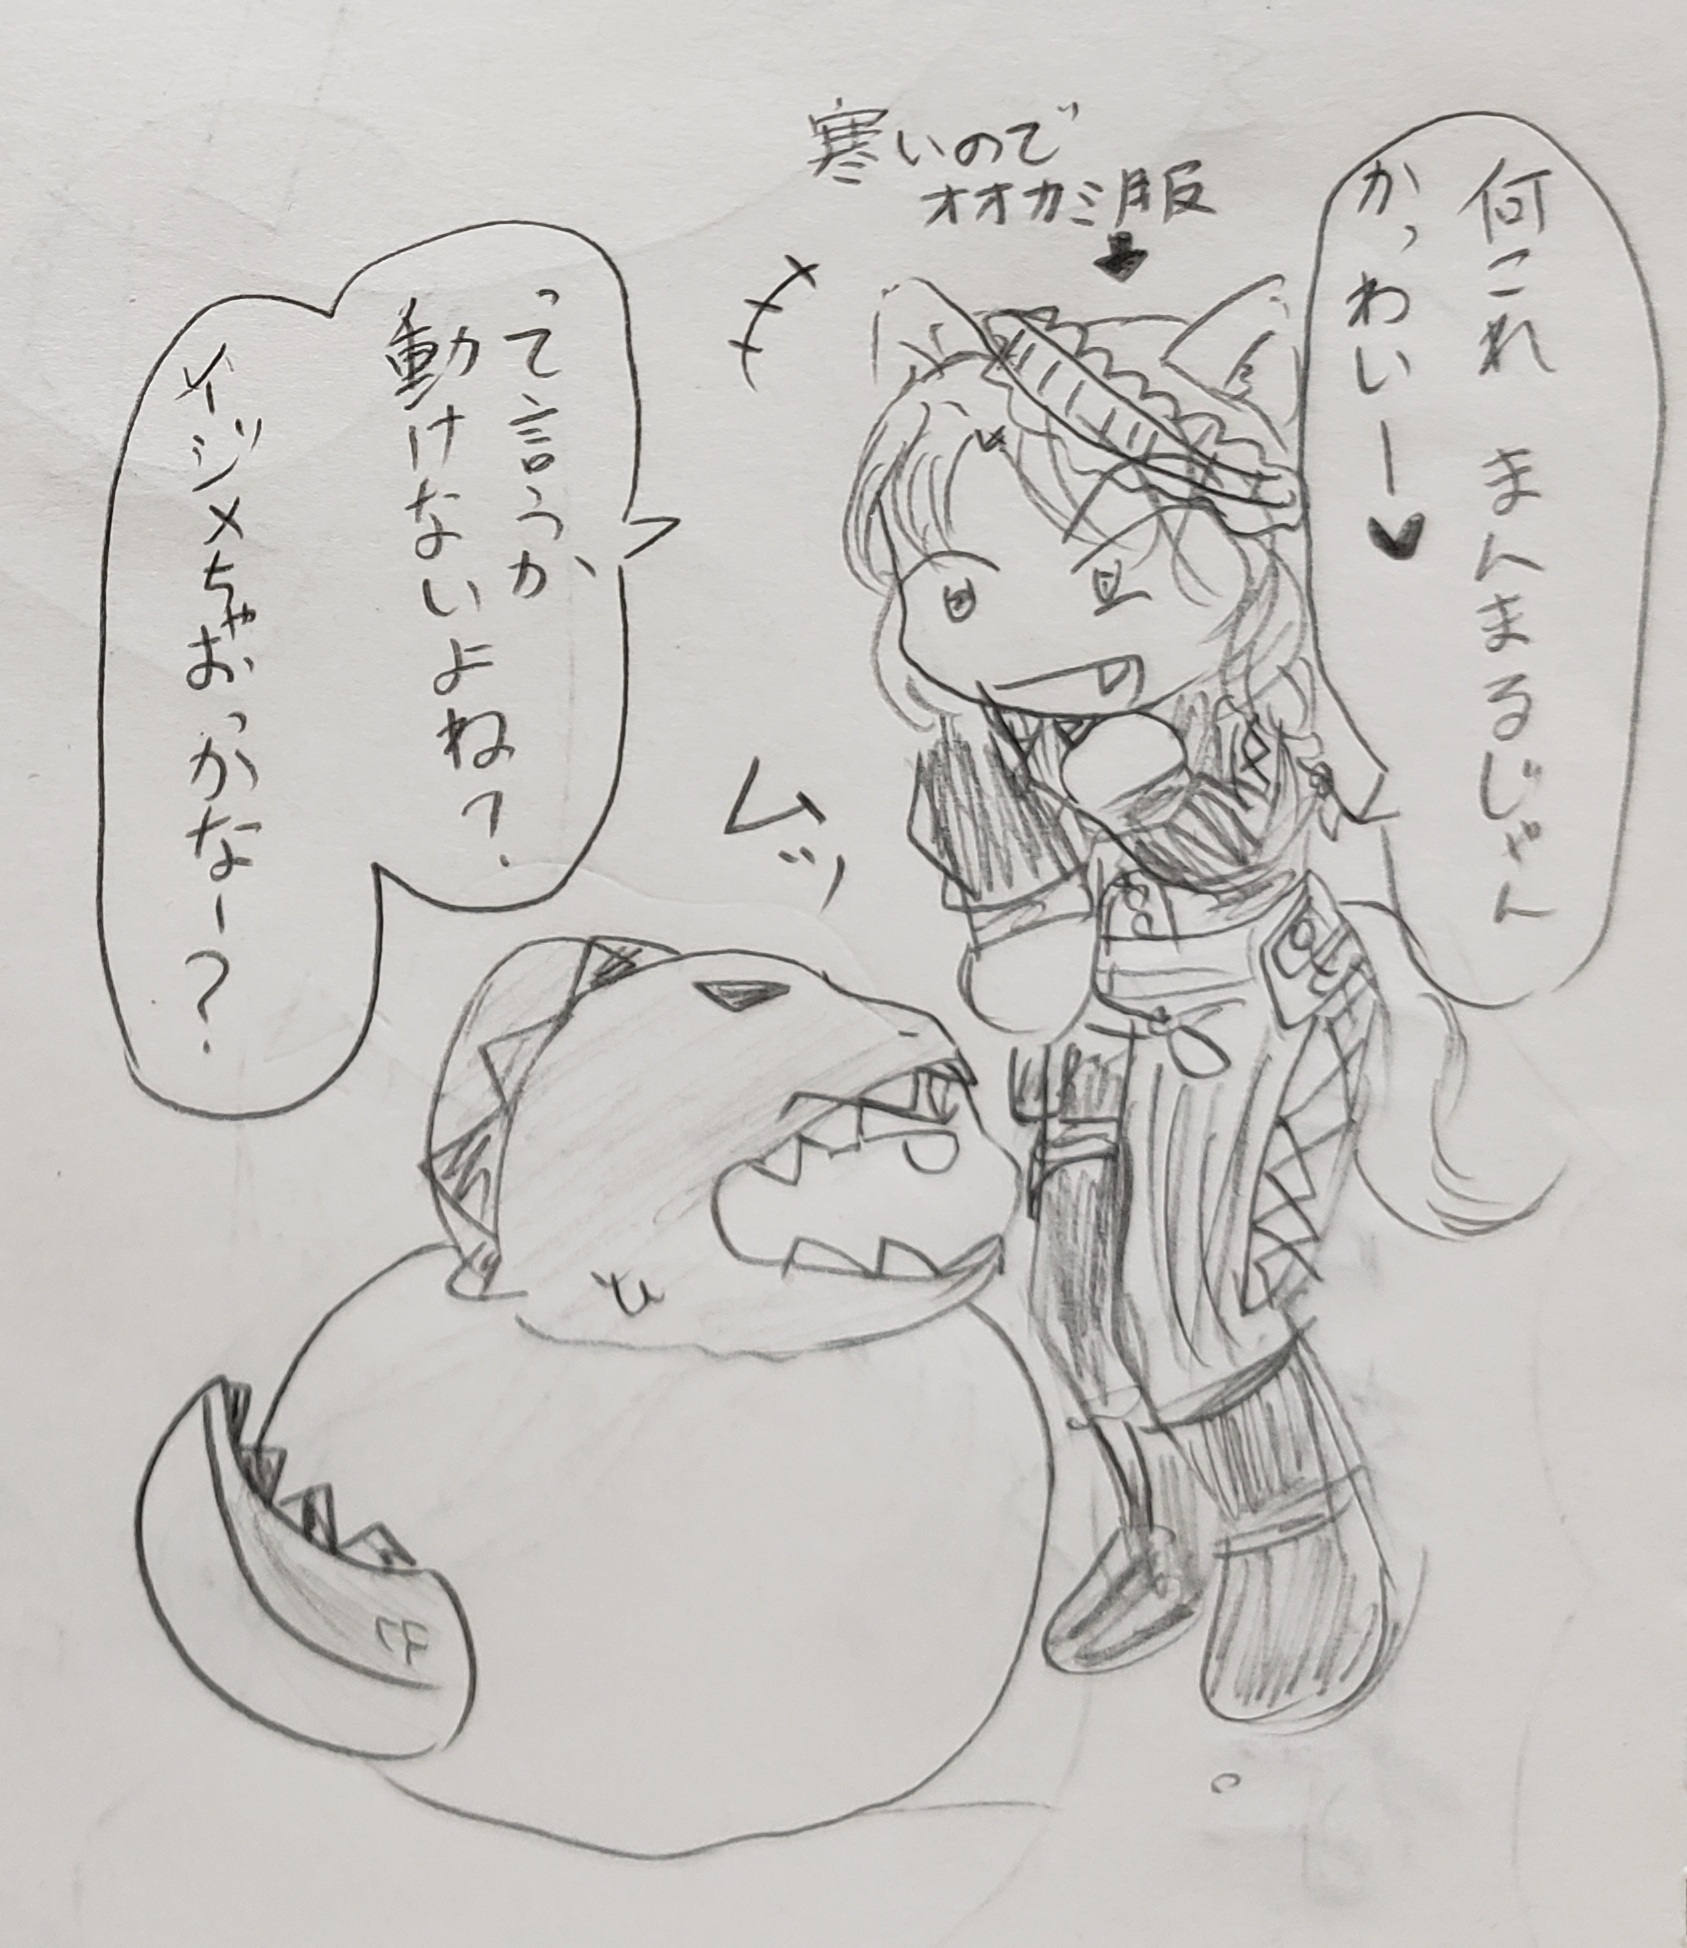 何これ まんまるじゃん
かっわいー♥
寒いので
オオカミ服
って言うか
動けないよね?
イジメちゃおっかなー?
ムッ